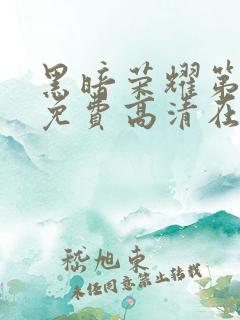 黑暗荣耀第
免费高清在
嵇旭东
未经同意禁止转载